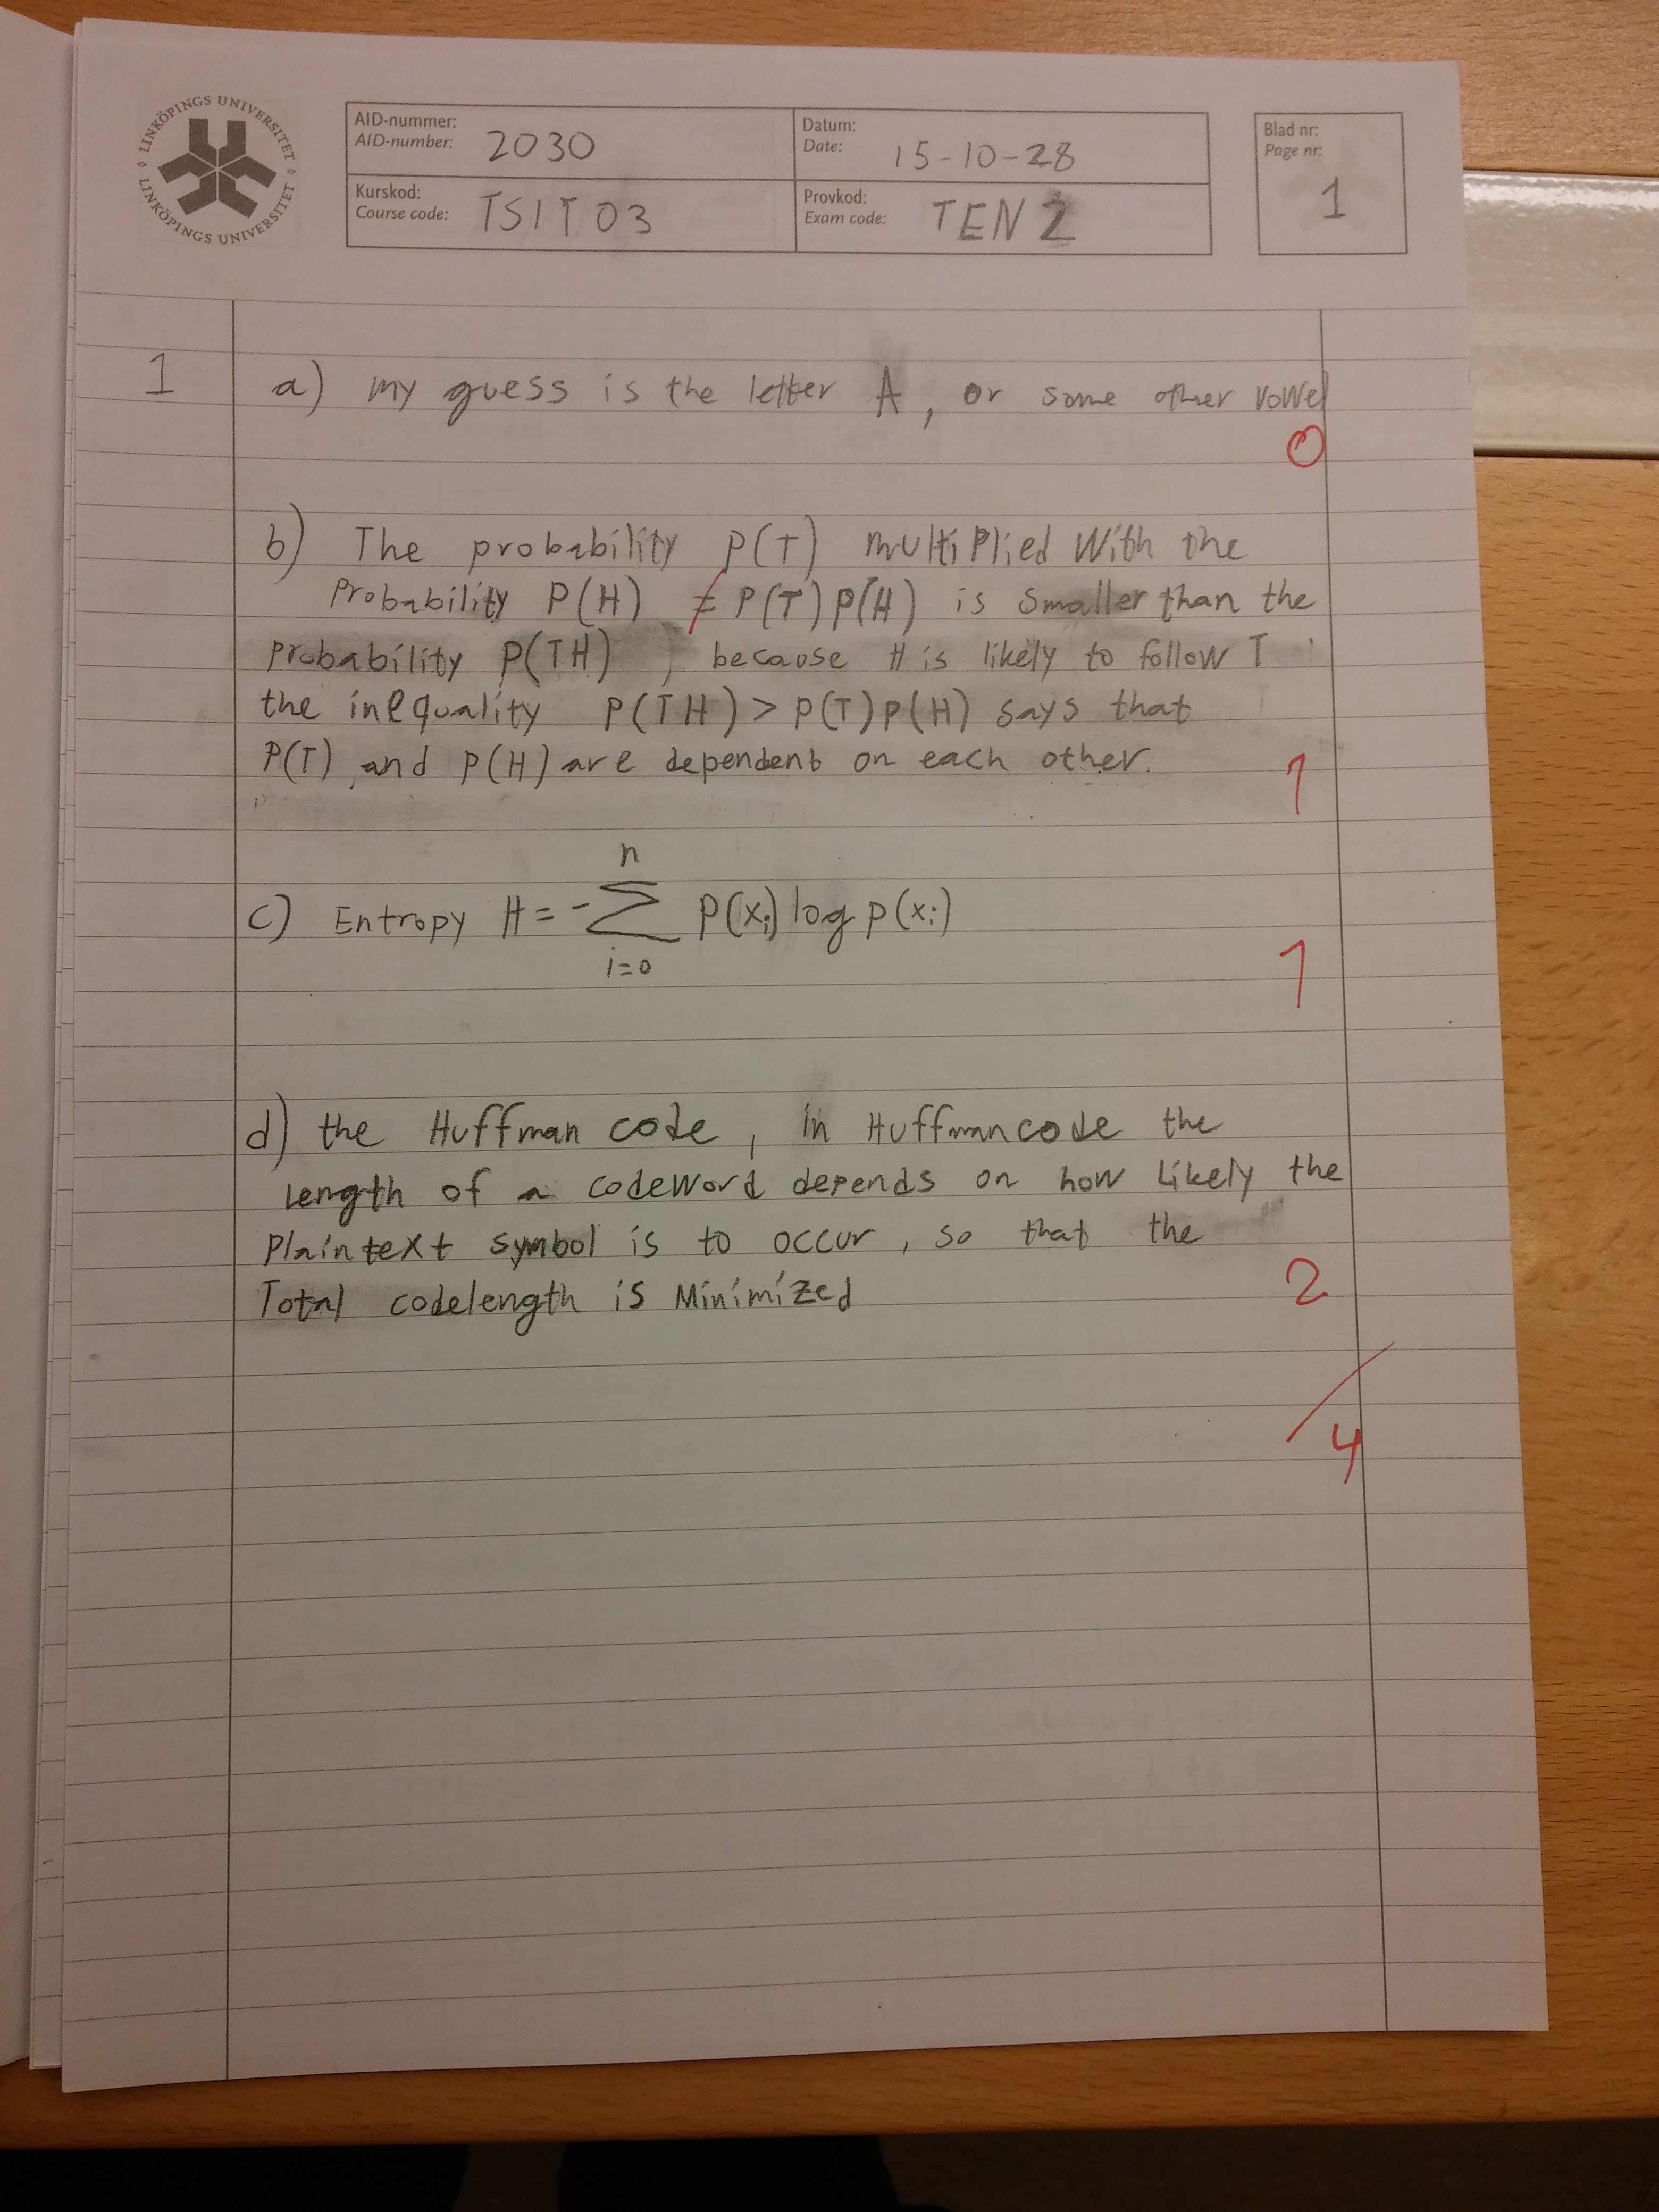 LINKÖPINGS UNIVERSITET
LINKÖPINGS UNIVERSITET
AID-nummer:
AID-number: 2030
Datum:
Date: 15-10-28
Blad nr:
Page nr:
1
Kurskod:
Course code: TSIT03
Provkod:
Exam code: TEN2
1 a) my guess is the letter A, or some other vowel
0
b) The probability P(T) multiplied with the
Probability P(H) = P(T)P(H) is smaller than the
probability P(TH) , because H is likely to follow T
the inequality P(TH) > P(T)P(H) says that
P(T) and P(H) are dependent on each other.
1
n
c) Entropy H = - ∑ P(xi) log p(xi)
i=0
1
d) the Huffman code, in Huffmancode the
length of a codeword depends on how likely the
plaintext symbol is to occur, so that the
Total codelength is Minimized
2
/4